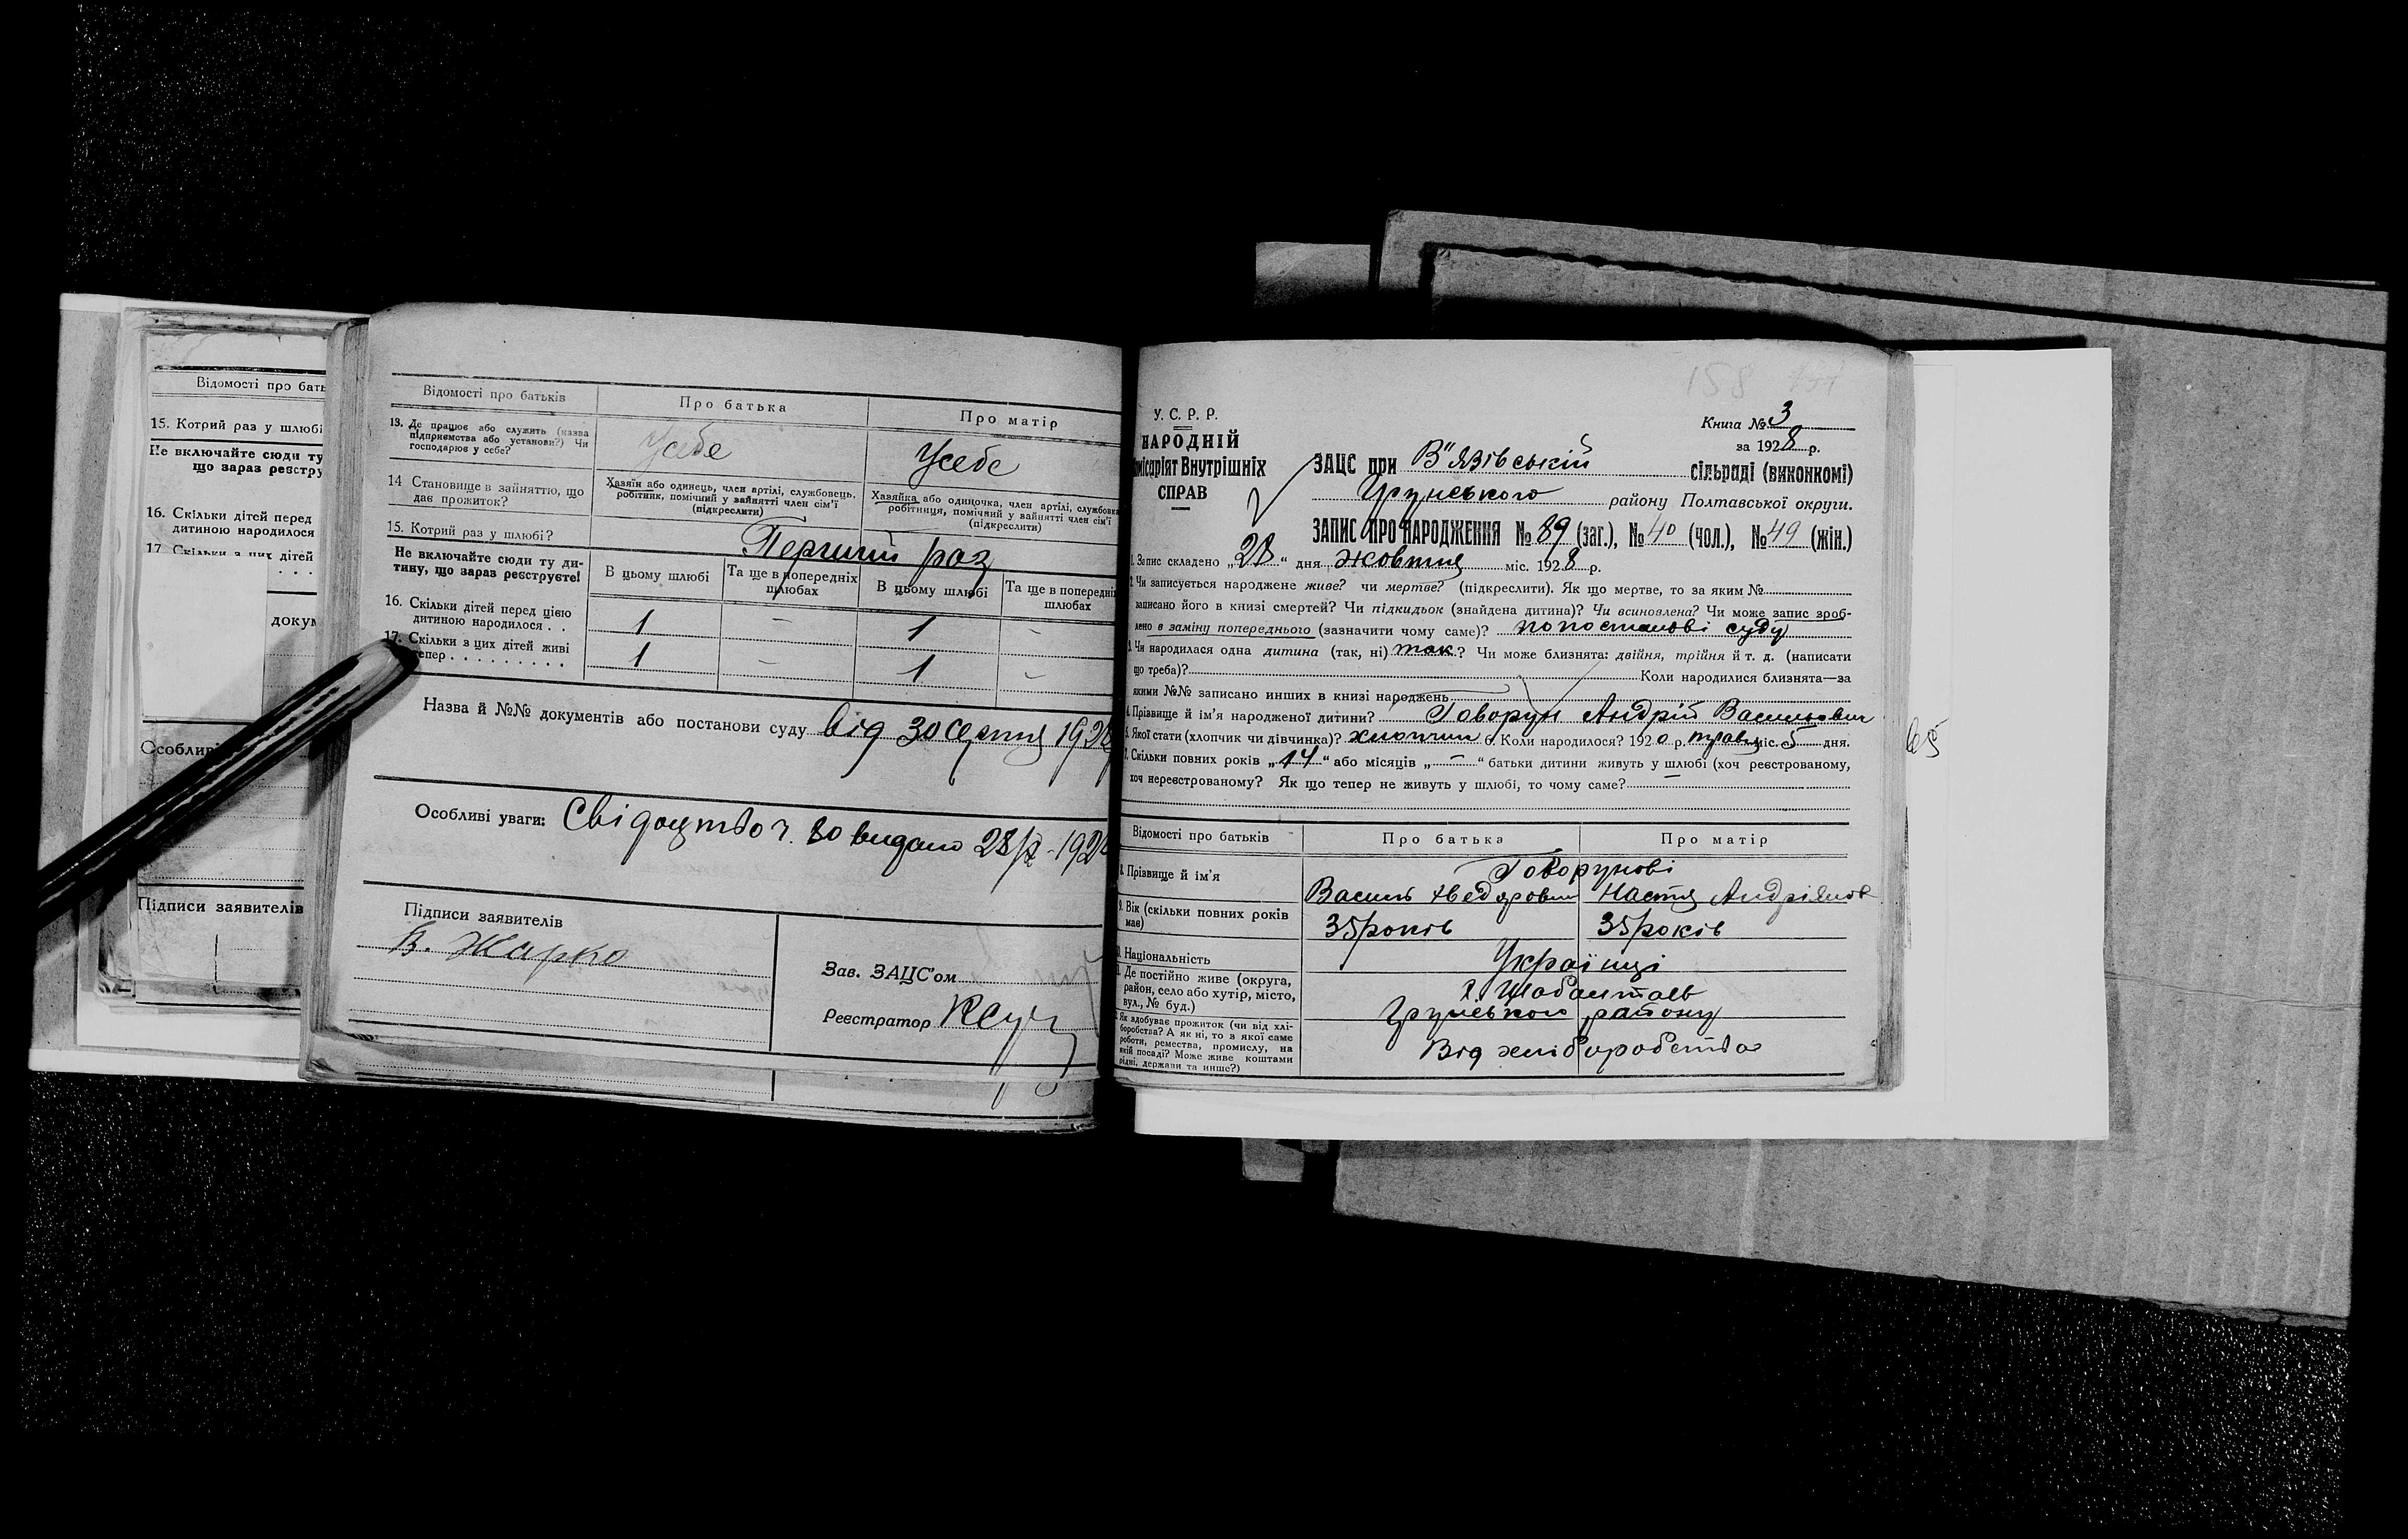 Відомості про бать
15. Котрий раз у шлюбі
Не включайте сюди ту
що зараз реєстру
16. Скільки дітей перед
дитиною народилося
17. Скільки з цих дітей
. . .
докум
Особливі
Підписи заявителів
Відомості про батьків
Про батька
Про матір
13. Де працює або служить (назва
підприємства або установи?) Чи
господарює у себе?
Усебе
Усебе
14 Становище в зайняттю, що
дає прожиток?
Хазяїн або одинець, член артілі, службовець,
робітник, помічний у зайнятті член сім'ї
(підкреслити)
Хазяйка або одиночка, член артілі, службовка
робітниця, помічний у зайнятті член сім'ї
(підкреслити)
15. Котрий раз у шлюбі?
Перший раз
Не включайте сюди ту ди-
тину, що зараз реєструєте!
В цьому шлюбі
Та ще в попередніх
шлюбах
В цьому шлюбі
Та ще в попередніх
шлюбах
16. Скільки дітей перед цією
дитиною народилося . .
1 – 1 –
17. Скільки з цих дітей живі
тепер . . . . . . . . . .
1 – 1 –
Назва й №№ документів або постанови суду від 30 серпня 1928
Особливі уваги: Свідоцтво ч. 80 видано 28/X-1928
Підписи заявителів
В. Жарко
Зав. ЗАЦС'ом
Реєстратор
158
У. С. Р. Р.
НАРОДНІЙ
місаріят Внутрішніх
СПРАВ
Книга № 3
за 1928 р.
ЗАЦС при В"язівській сільраді (виконкомі)
Грунського району Полтавської округи.
ЗАПИС ПРО НАРОДЖЕННЯ № 89 (заг.), № 40 (чол.), № 49 (жін.)
1. Запис складено „28" дня жовтня міс. 1928 р.
2. Чи записується народжене живе? чи мертве? (підкреслити). Як що мертве, то за яким №
записано його в книзі смертей? Чи підкидьок (знайдена дитина)? Чи всиновлена? Чи може запис зроб-
лено в заміну попереднього (зазначити чому саме)? по постанові суду
3. Чи народилася одна дитина (так, ні) так? Чи може близнята: двійня, трійня й т. д. (написати
що треба)? Коли народилися близнята—за
якими №№ записано инших в книзі народжень
4. Прізвище й ім'я народженої дитини? Говорун Андрій Васильович
5. Якої стати (хлопчик чи дівчинка)? хлопчик 6. Коли народилося? 1920 р. травня міс. 5 дня.
7. Скільки повних років „14" або місяців „–" батьки дитини живуть у шлюбі (хоч реєстрованому,
хоч нереєстрованому? Як що тепер не живуть у шлюбі, то чому саме? –
65
Відомості про батьків
Про батька
Про матір
8. Прізвище й ім'я
Говорунові
Василь Федорович
Настя Андріянов
9. Вік (скільки повних років
має)
35 років
35 років
10. Національність
Українці
11. Де постійно живе (округа,
район, село або хутір, місто,
вул., № буд.)
Грунського району
Як здобуває прожиток (чи від хлі-
боробства? А як ні, то з якої саме
роботи, ремества, промислу, на
якій посаді? Може живе коштами
рідні, держави та инше?)
Від хліборобства